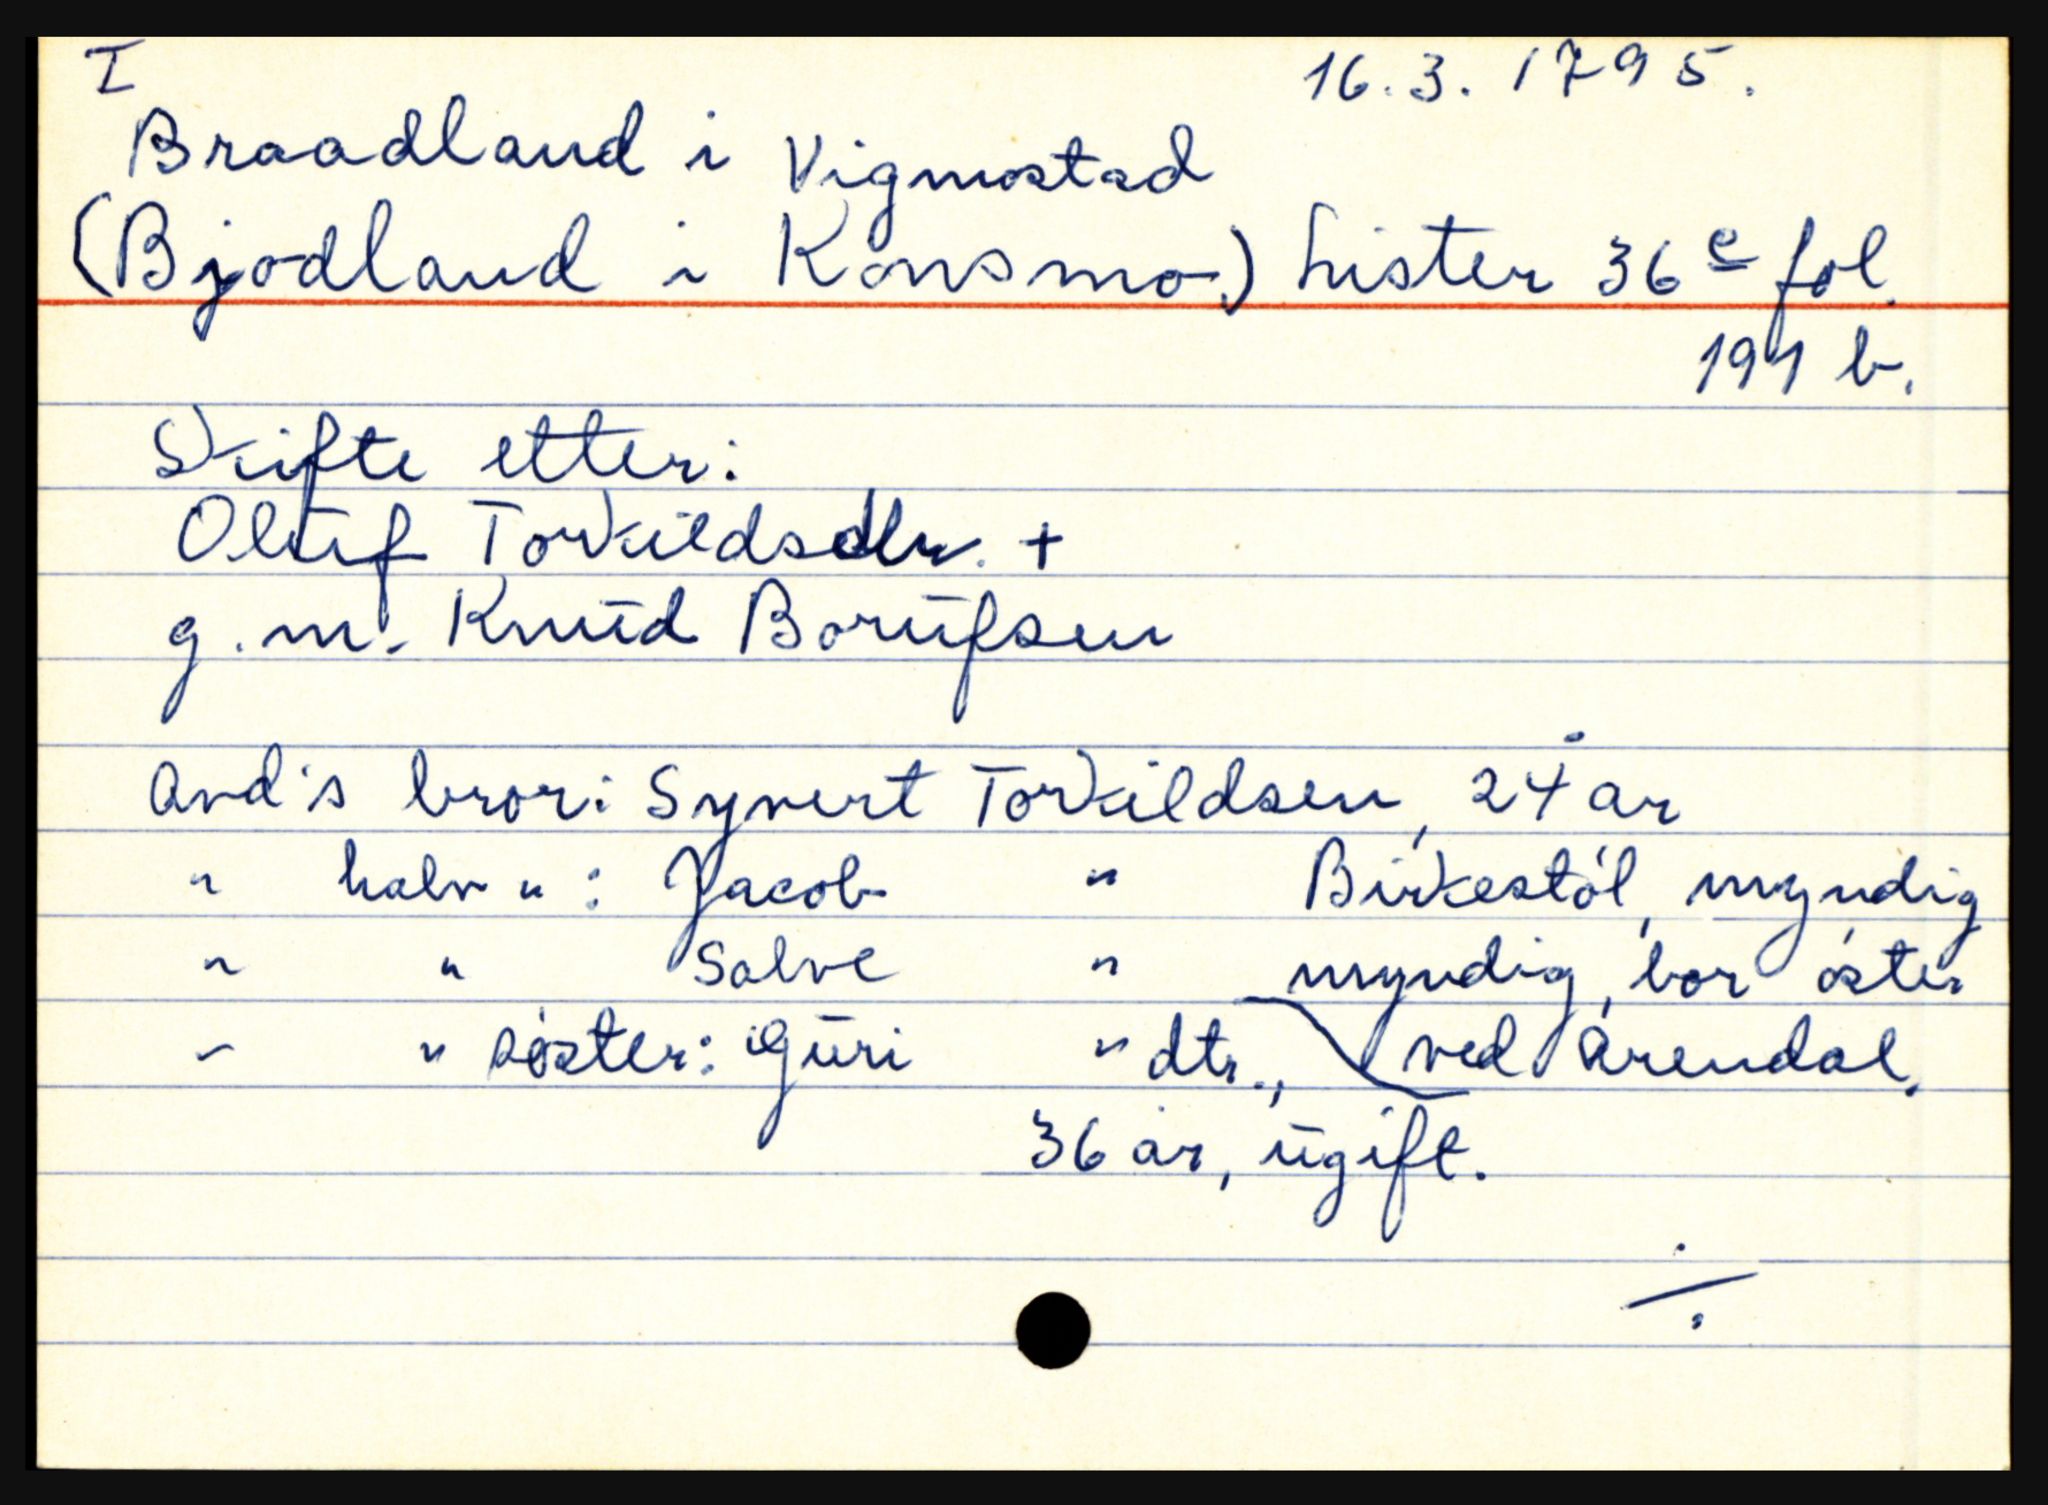 I 16.3.1795.
Braadland i Vigmostad
(Bjodland i Konsmo.) Lister 36 c fol.
191 b.
Skifte etter:
Oluf Torkildsdtr. +
g.m. Knud Borufsen
avd's bror: Syvert Torkildsen, 24 år
" halv " : Jacob " Birkestöl, myndig
" " Salve " myndig, bor öster
" " söster: Guri " dtr., ved Arendal.
36 år, ugift.